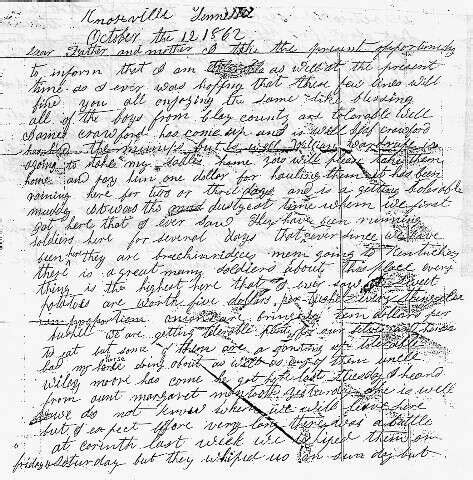 Knoxville Tennessee
October the 12 1862
Dear Father and mother I take the present opportunity
to inform that I am as well at the present
time as I ever was hopping that these few lines will
find you all enjoying the same like blessing
all of the boys from Clay county are tolarable well
James crawford has come up and is well crawford
has the mumps but is well
going to take my saddle home you will pleas take them
home and pay him one dollar for hauling them it has been
raining here for two or three days and is a getting tolerable
muddy it was the dustyest time when we first
got here that I ever saw They have been running
soldiers here for several days that ever since we have
been here they are brechinridges mem going to Kentuckey
there is a great many soldiers about this place every
thing is the highest here that I ever saw Sweet
potatoes are worth five dollars per bushel every
in proportion bringing ten dollars per
bushell we are getting tolerable plenty for our
to eat but some of them are a gowing up tolerable
bad my horse is doing about as well as any of them uncle
wiley moore has come he got here last Tuesday I heard
from aunt margaret yesterday she is well
we do not know when we will leave here
but I expect before very long there was a battle
at corinth last week we whiped them on
friday & Saturday but they whiped us on sun day but